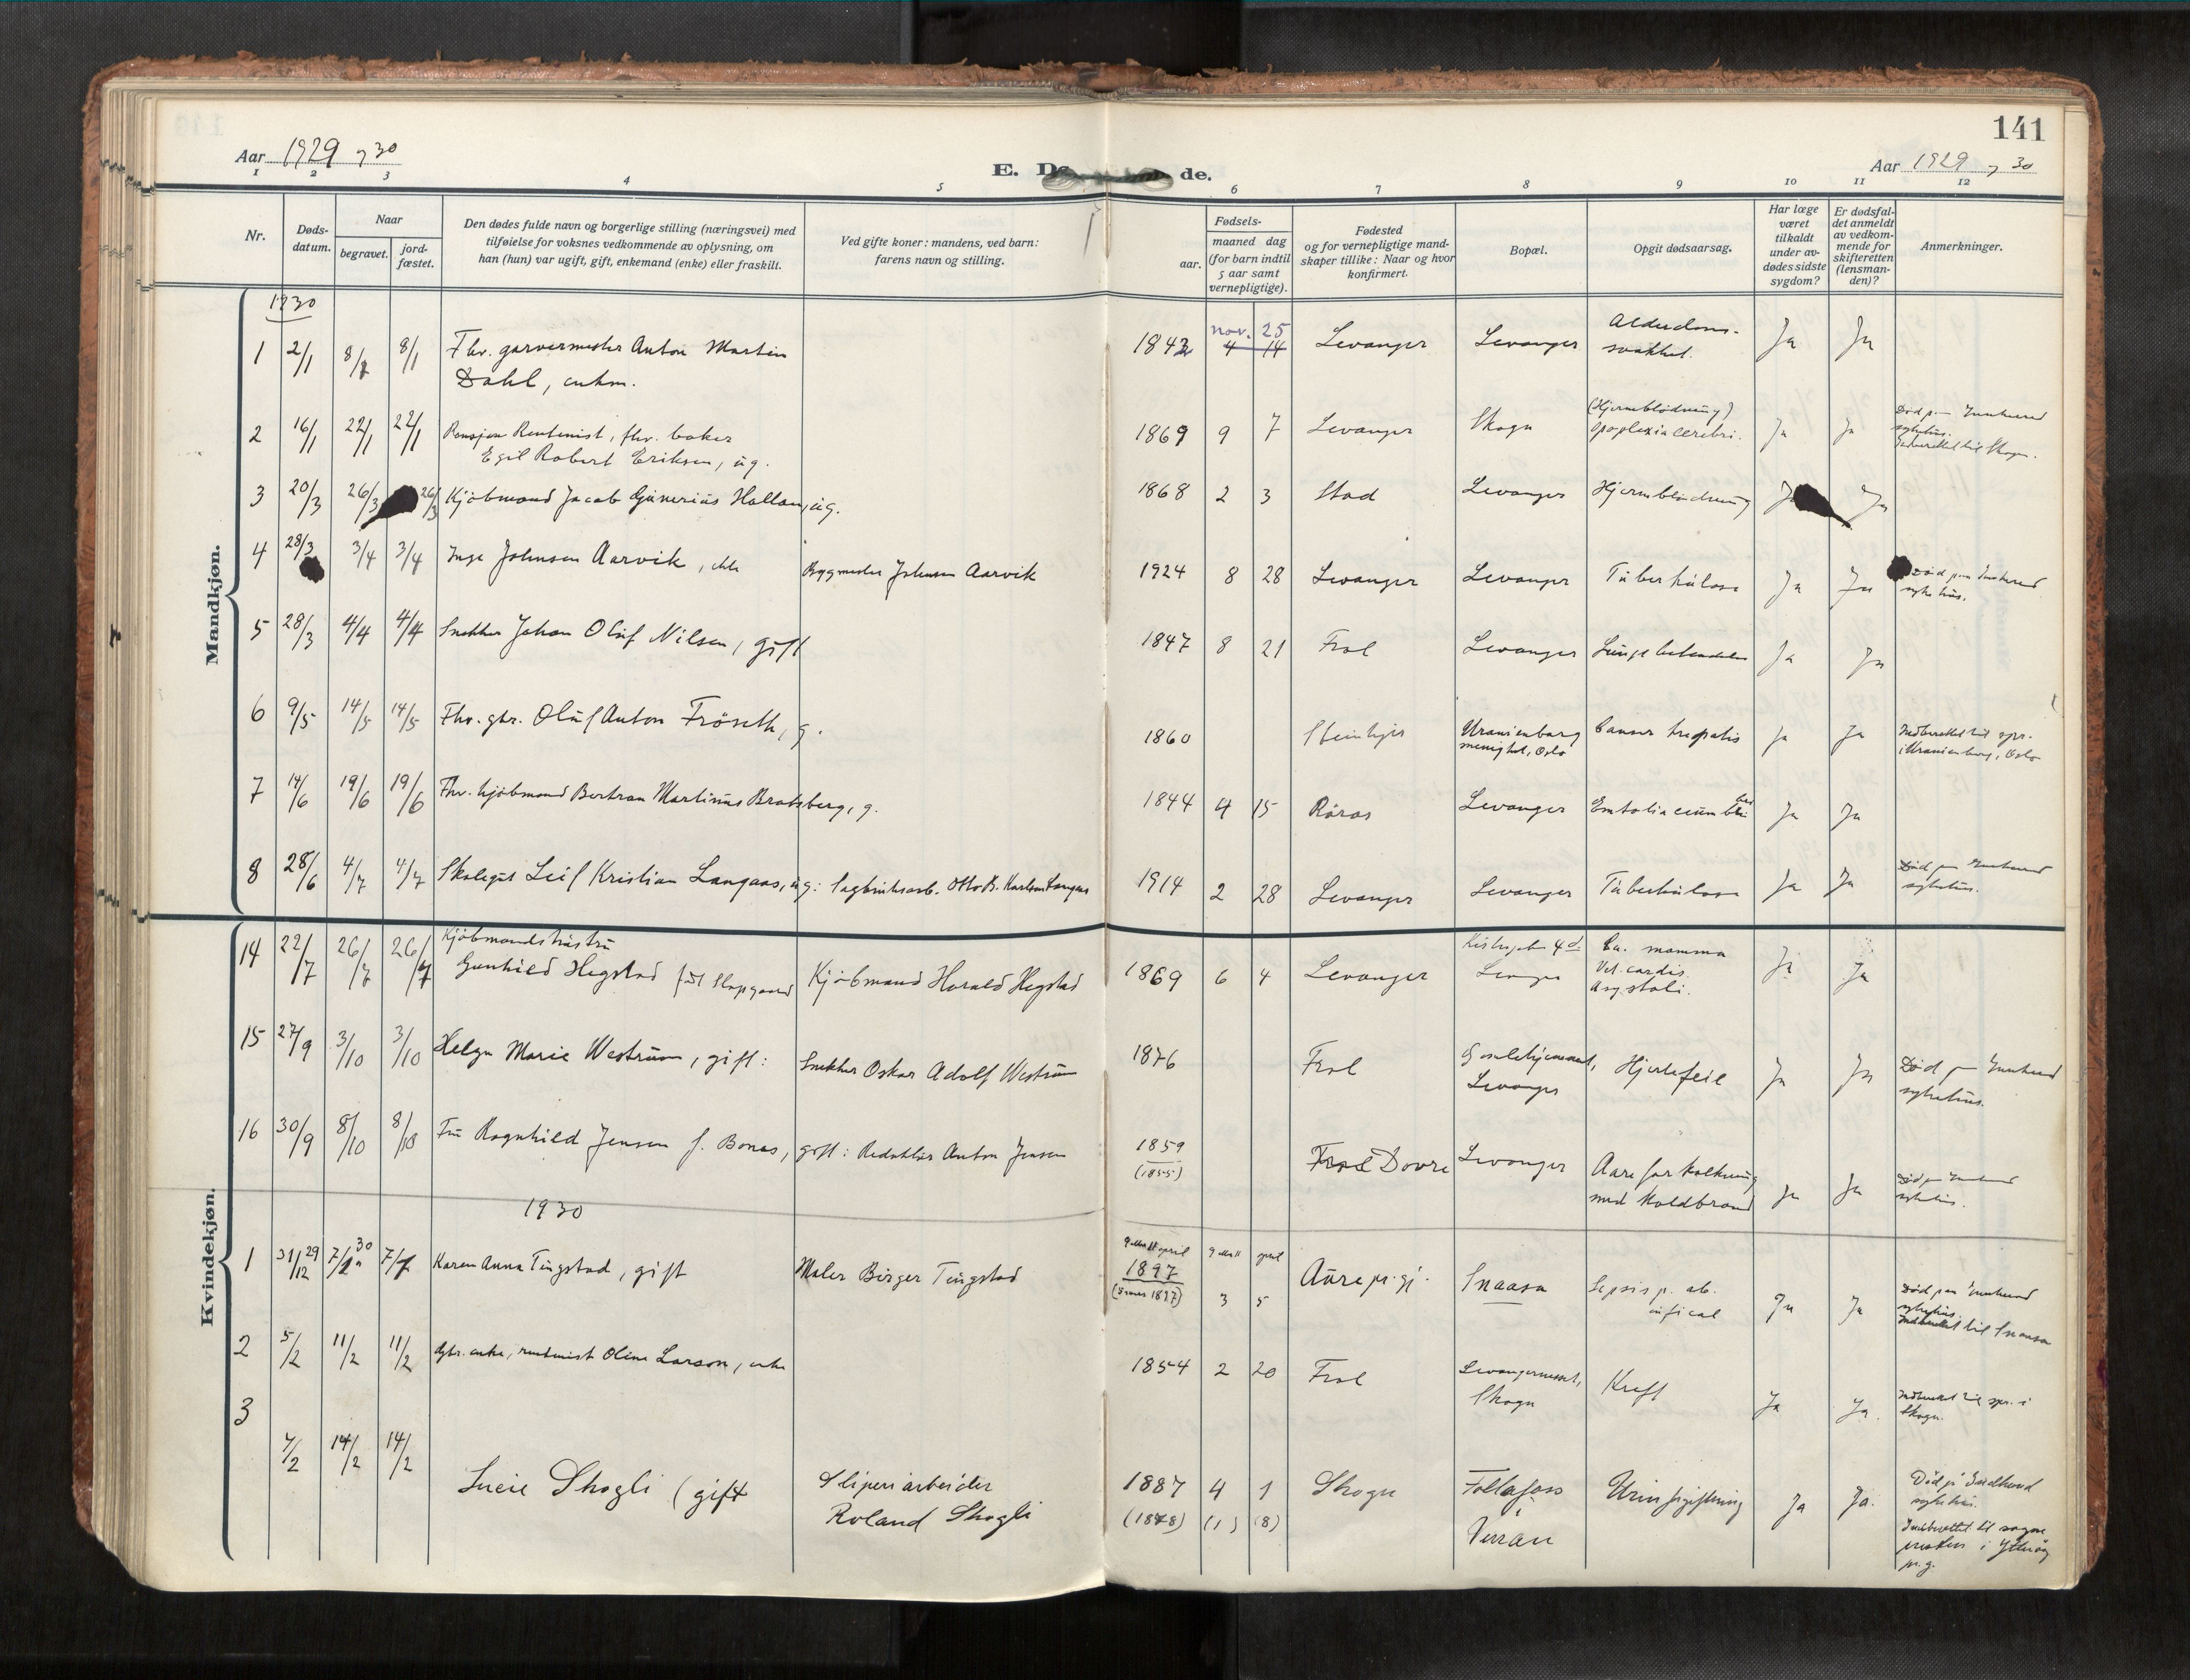 141
Aar 1929 og 30
E. Dø de.
Aar 1929 og 30
1 2 3 4 5 6 7 8 9 10 11 12
Nr.
Døds-
datum.
Naar
begravet.
jord-
fæstet.
Den dødes fulde navn og borgerlige stilling (næringsvei) med
tilføielse for voksnes vedkommende av oplysning, om
han (hun) var ugift, gift, enkemand (enke) eller fraskilt.
Ved gifte koner: mandens, ved barn:
farens navn og stilling.
Fødsels-
aar.
maaned dag
(for barn indtil
5 aar samt
vernepligtige).
Fødested
og for vernepligtige mand-
skaper tillike: Naar og hvor
konfirmert.
Bopæl.
Opgit dødsaarsag.
Har læge
været
tilkaldt
under av-
dødes sidste
sygdom?
Er dødsfal-
det anmeldt
av vedkom-
mende for
skifteretten
(lensman-
den)?
Anmerkninger.
Mandkjøn.
1930
1 2/1 8/1 8/1 Fhv. garvermester Anton Martin
Dahl, enkm.
1842 nov. 25
4 14
Levanger Levanger Alderdoms-
svakhet. Ja Ja
2 16/1 22/1 22/1 Rentenist, fhv. baker
Egil Robert Eriksen, ug.
1869 9 7 Levanger Skogn (Hjerneblödning)
Apoplexia cerebri. Ja Ja
Död paa Innherred
sykehus.
Indberettet til Skogn.
3 20/3 26/3 26/3 Kjöbmand Jacob Gunerius Hallan, ug.
1868 2 3 Stod Levanger Hjerneblödning Ja Ja
4 28/3 3/4 3/4 Inge Johnsen Aarvik,
Bygmester Johnsen Aarvik
1924 8 28 Levanger Levanger Tuberkulose Ja Ja
Död paa Innherred
sykehus.
5 28/3 4/4 4/4 Snekker Johan Oluf Nilsen, gift
1847 8 21 Frol Levanger Lungebetendelse Ja Ja
6 9/5 14/5 14/5 Fhv. gbr. Oluf Anton Fröseth, g.
1860 Steinkjer Uranienborg
menighet, Oslo
Cancer hepatis Ja Ja
Indberettet til spr.
i Uranienborg, Oslo
7 14/6 19/6 19/6 Fhv. kjöbmand Bertran Martinus Bratsberg, g.
1844 4 15 Röros Levanger Ja Ja
8 28/6 4/7 4/7 Skolegut Leif Kristian Langaas, ug: Sagbruksarb. Otto B. Karlsen Langaas
1914 2 28 Levanger Levanger Tuberkulose Ja Ja
Död paa Innherred
sykehus.
Kvindekjøn.
14 22/7 26/7 26/7 Kjöbmandshustru
Gunhild Hegstad född Slapgaard
Kjöbmand Harald Hegstad
1869 6 4 Levanger Kirkegaten 4d
Levanger
Ca. mamma
Vit. cordis.
Asystoli. Ja Ja
15 27/9 3/10 3/10 Helga Marie Westrum, gift:
Snekker Oskar Adolf Westrum
1876 Frol Gamlehjemmet,
Levanger
Hjertefeil Ja Ja
Död paa Innherred
sykehus.
16 30/9 8/10 8/10 Fru Ragnhild Jensen f. Bones, gift: Redaktör Anton Jensen
1859
(1855)
Frol Dovre Levanger Aareforkalkning
med Koldbrand Ja Ja
Död paa Innherred
sykehus.
1930
1 31/12 29 7/1 30 7/1 Karen Anna Tingstad, gift
Maler Birger Tingstad
april
1897
(5 mars 1897)
3 5
april
Aure pr.gj. Snaasa Sepsis p. ab.
Ja Ja
Död paa Innherred
sykehus.
Indberettet til Snaasa
2 5/2 11/2 11/2 Gbr. enke, rentenist Oline Larson, enke
1854 2 20 Frol Levangernesset,
Skogn
Kreft Ja Ja.
Indberettet til spr. i
Skogn.
3 7/2 14/2 14/2 Lucie Skogli (gift
Sliperiarbeider
Roland Skogli
1887 4 1
(1878) (1) (8)
Skogn Follafoss
i
Verran
Urinforgiftning Ja Ja.
Död på Indherred
sykehus.
Indberettet til sogne
presten i Ytteröy
pr.g.